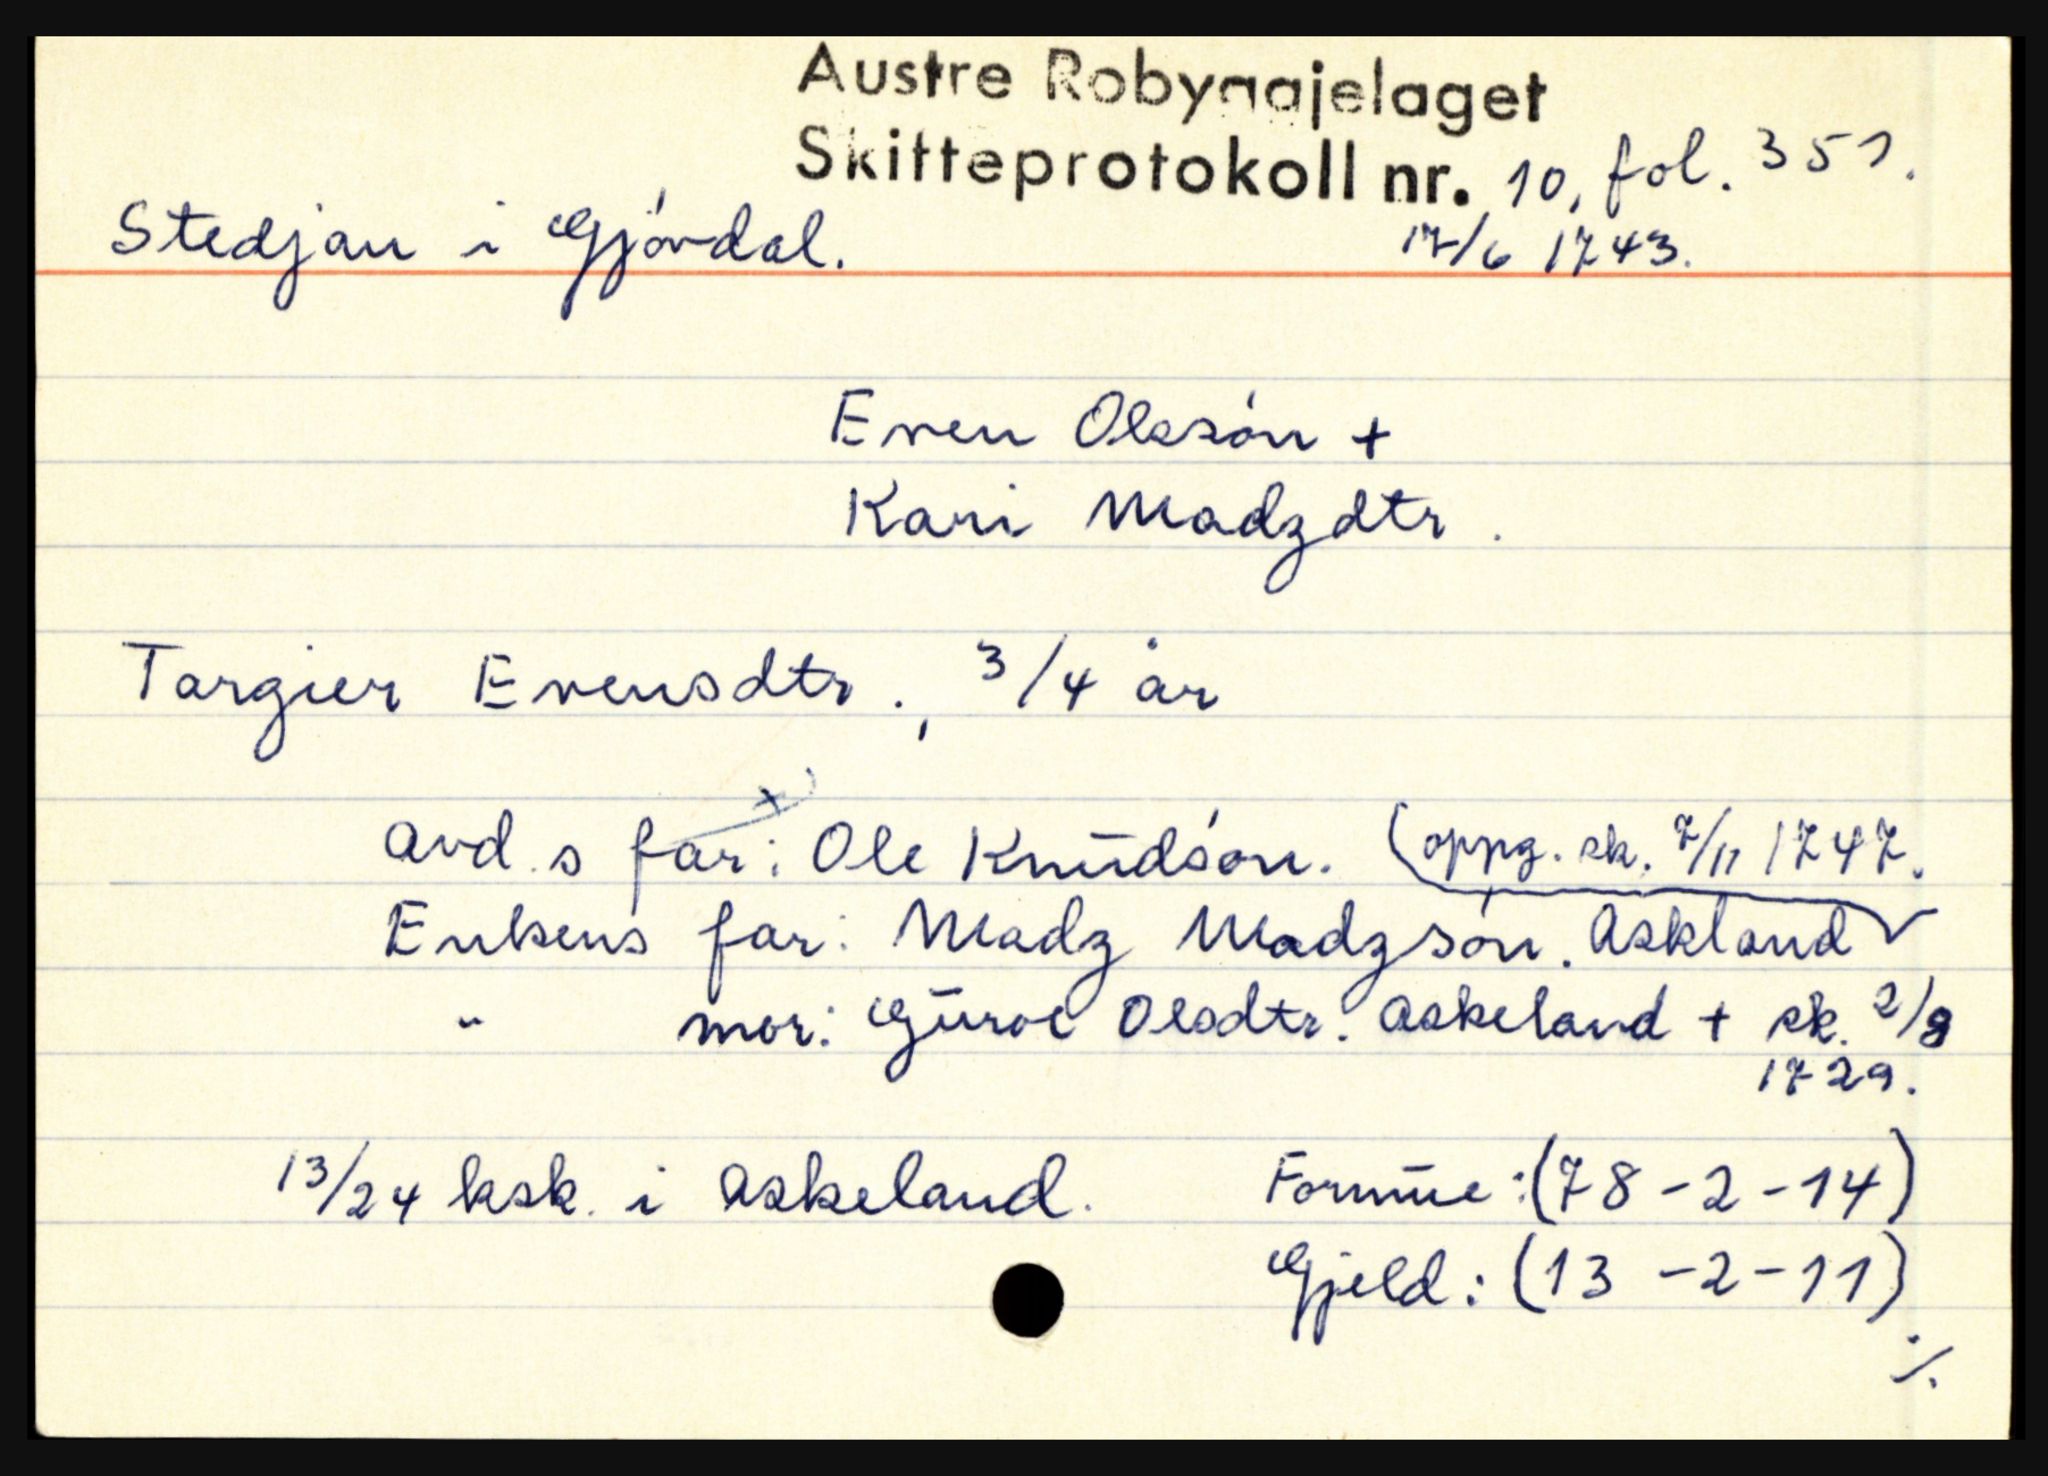 Austre Robyggjelaget
Skifteprotokoll nr. 10, fol. 351.
Stedjan i Gjóvdal. 17/6 1743.
Even Olessón +
Kari Madzdtr.
Targier Evensdtr., 3/4 år
+
avd.s far: Ole Knūdsón. (oppg. sk. 7/11 1747.
Enkens far: Madz Madzsón. Askland
" mor: Gūroe Olsdtr. Askeland + sk. 2/8
1729.
13/24 ksk. i Askeland. Formūe: (78-2-14)
Gjeld: (13-2-11)
./.